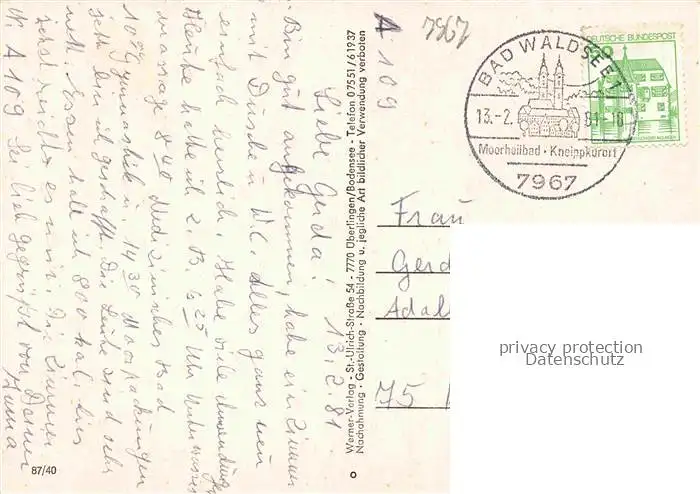 A 109
7967
BAD WALDSEE 1
13.-2. 81-18
Moorheilbad · Kneippkurort
7967
DEUTSCHE BUNDESPOST
13.2.81
Liebe Gerda!
Bin gut angekommen, habe ein Zimmer
mit Dusche u. WC. Alles ganz neu
einfach herrlich. Habe viele Anwendungen
Heute hatte ich z. B. 6 25 Uhr Unterwasser
massage 8 40 Medizinisches Bad
10 00 Gymnastik u. 14 30 Moorpackungen
jetzt bin ich geschafft. Die Leute sind sehr
nett. Essen halt ich 800 kal. bis
jetzt reicht es mir. Die Zimmer
Nr. A 109 Sei lieb gegrüßt von Deiner
87/40
Werner-Verlag · St.-Ulrich-Straße 54 · 7770 Überlingen/Bodensee · Telefon 07551/61937
Nachahmung · Gestaltung · Nachbildung u. jegliche Art bildlicher Verwendung verboten
Frau
Gerd
Adal
75
privacy protection
Datenschutz